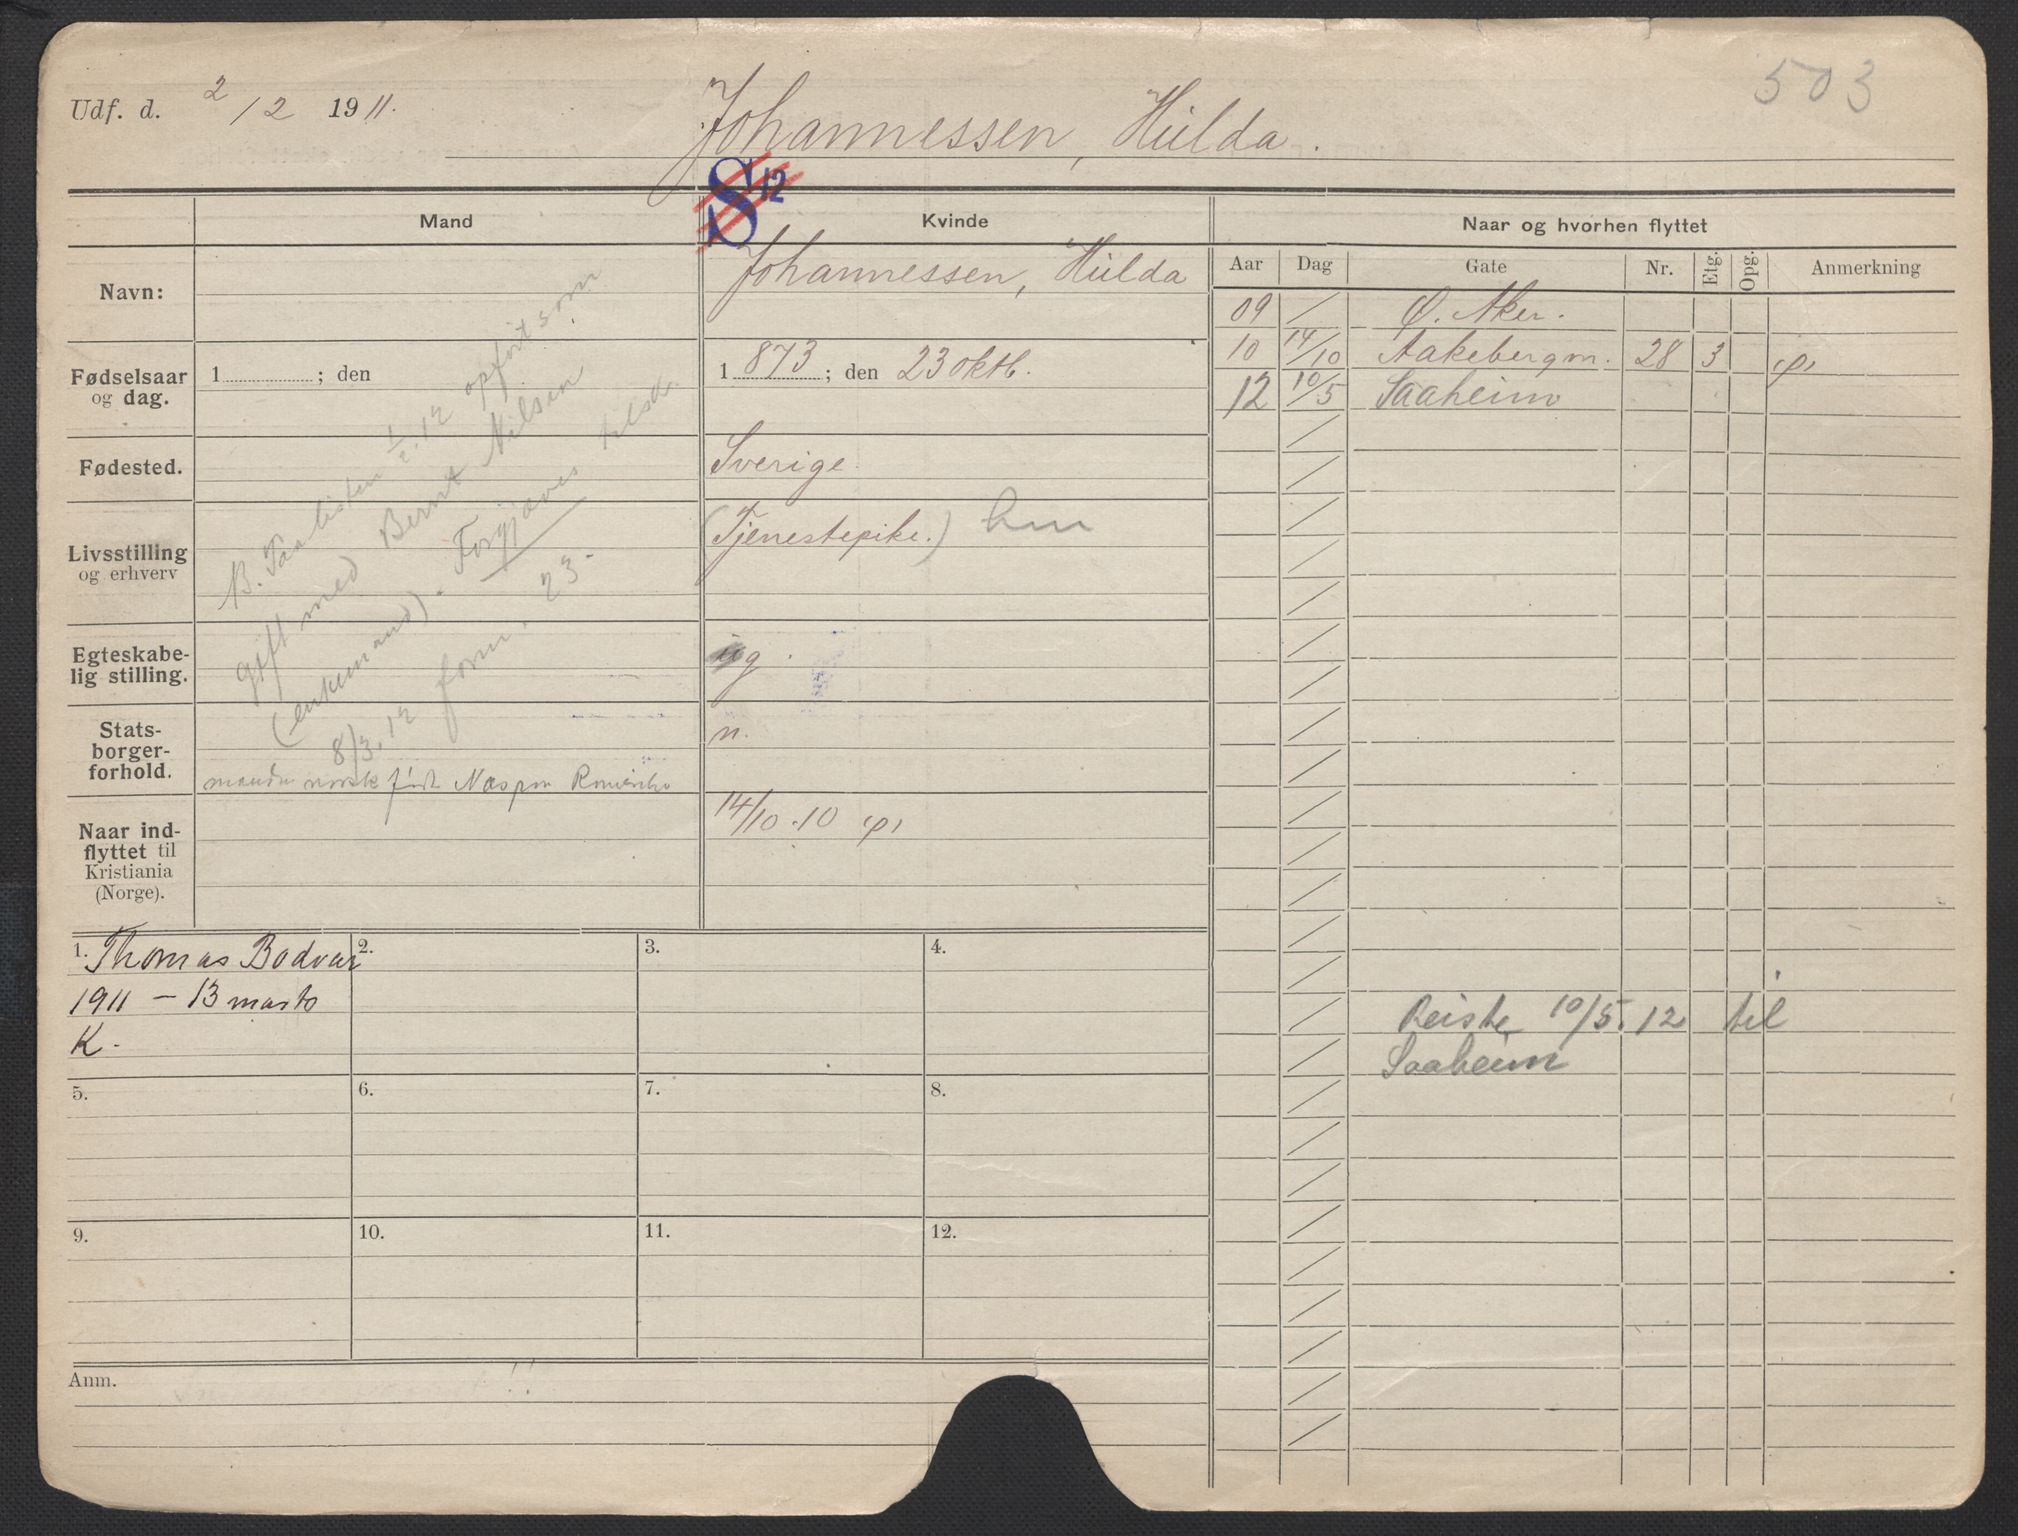 Udf. d. 2/2 1911.
Johannessen, Hulda.
503
S 12
Mand
Kvinde
Naar og hvorhen flyttet
Navn:
Johannessen, Hulda
Aar Dag Gate Nr. Etg. Opg. Anmerkning
09 / Ø. Aker.
10 14/10 Aakebergv. 28 3
12 10/5 Saaheim
Fødselsaar og dag.
1 ; den
1 873 ; den 23 oktb.
Fødested.
Sverige.
Livsstilling og erhverv
(Tjenestepike.) hm
Egteskabe-
lig stilling.
ug.
Stats-
borger-
forhold.
n.
B. Paalisten 1/2.12 opført som
gift med Bernt Nilsen
(enkemand). Forgjæves tilsk.
8/3.12 form. 23.
norsk født Næs paa Romerike
Naar ind-
flyttet til
Kristiania
(Norge).
14/10.10
1. Thomas Bodvar
1911 – 13 marts
K.
2.
3.
4.
Reiste 10/5.12 til
Saaheim
5.
6.
7.
8.
9.
10.
11.
12.
Anm.